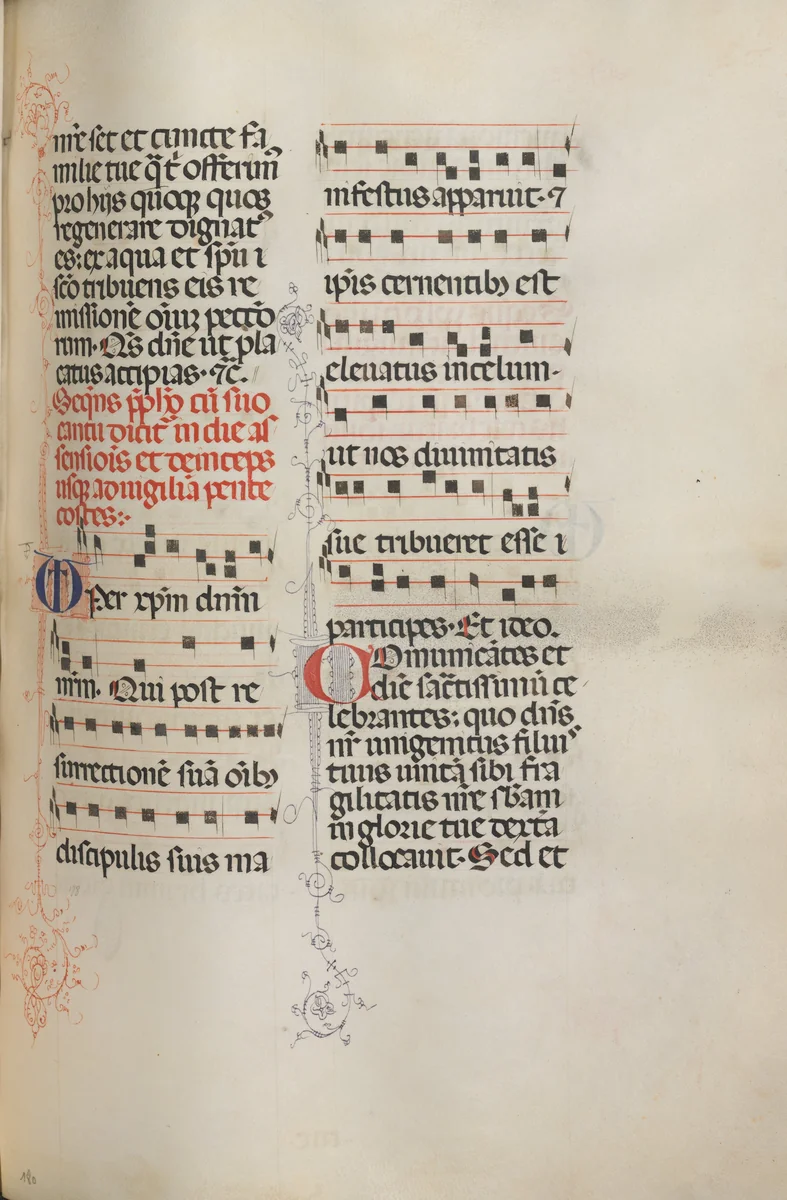 nr̄e sꝫ et et cuncte fa
milie tue q̄t offerim
pro hijs quoqꝫ quos
regenerare dignat
es: ex aqua et sp̄u
sc̄o tribuens eis re
missionē oīuꝫ pecco
rum. Qs dn̄e ut pla
catus accipias. ⁊c̄.
Seqn̄s p̄ph̓o cū suo
cantu dicit̓ in die as
sensiōis et deinceps
usqꝫ ad uigiliā pente
costes:
Per xp̄m dn̄m
nr̄m. Qui post re
surrectionē suā oīb̓ꝫ
discipulis suis ma
infestus apparuit. ⁊
ip̄is cernentibꝫ est
eleuatus in celum.
ut nos diuinitatis
sue tribueret esse
participes. Et ideo.
COmunicātes et
diē sac̄tissimū ce
lebrantes: quo dn̄s
nr̄ unigenitus filius
tuus unitā sibi fra
gilitatis nr̄e sb̄am
in glorie tue dext̄a
collocauit. Sed et
180